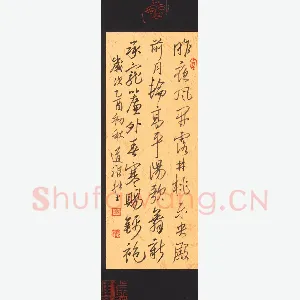 昨夜风开露井桃未央殿
前月轮高平阳歌舞新
承宠帘外春寒赐锦袍
岁次乙酉初秋道
Shufawang.CN